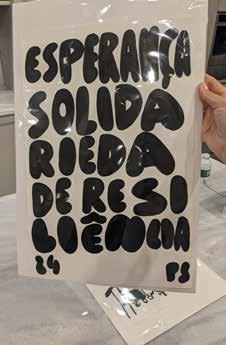 ESPERANÇA
SOLIDA
RIEDA
DE RESI
LIÊNCIA
24 FS